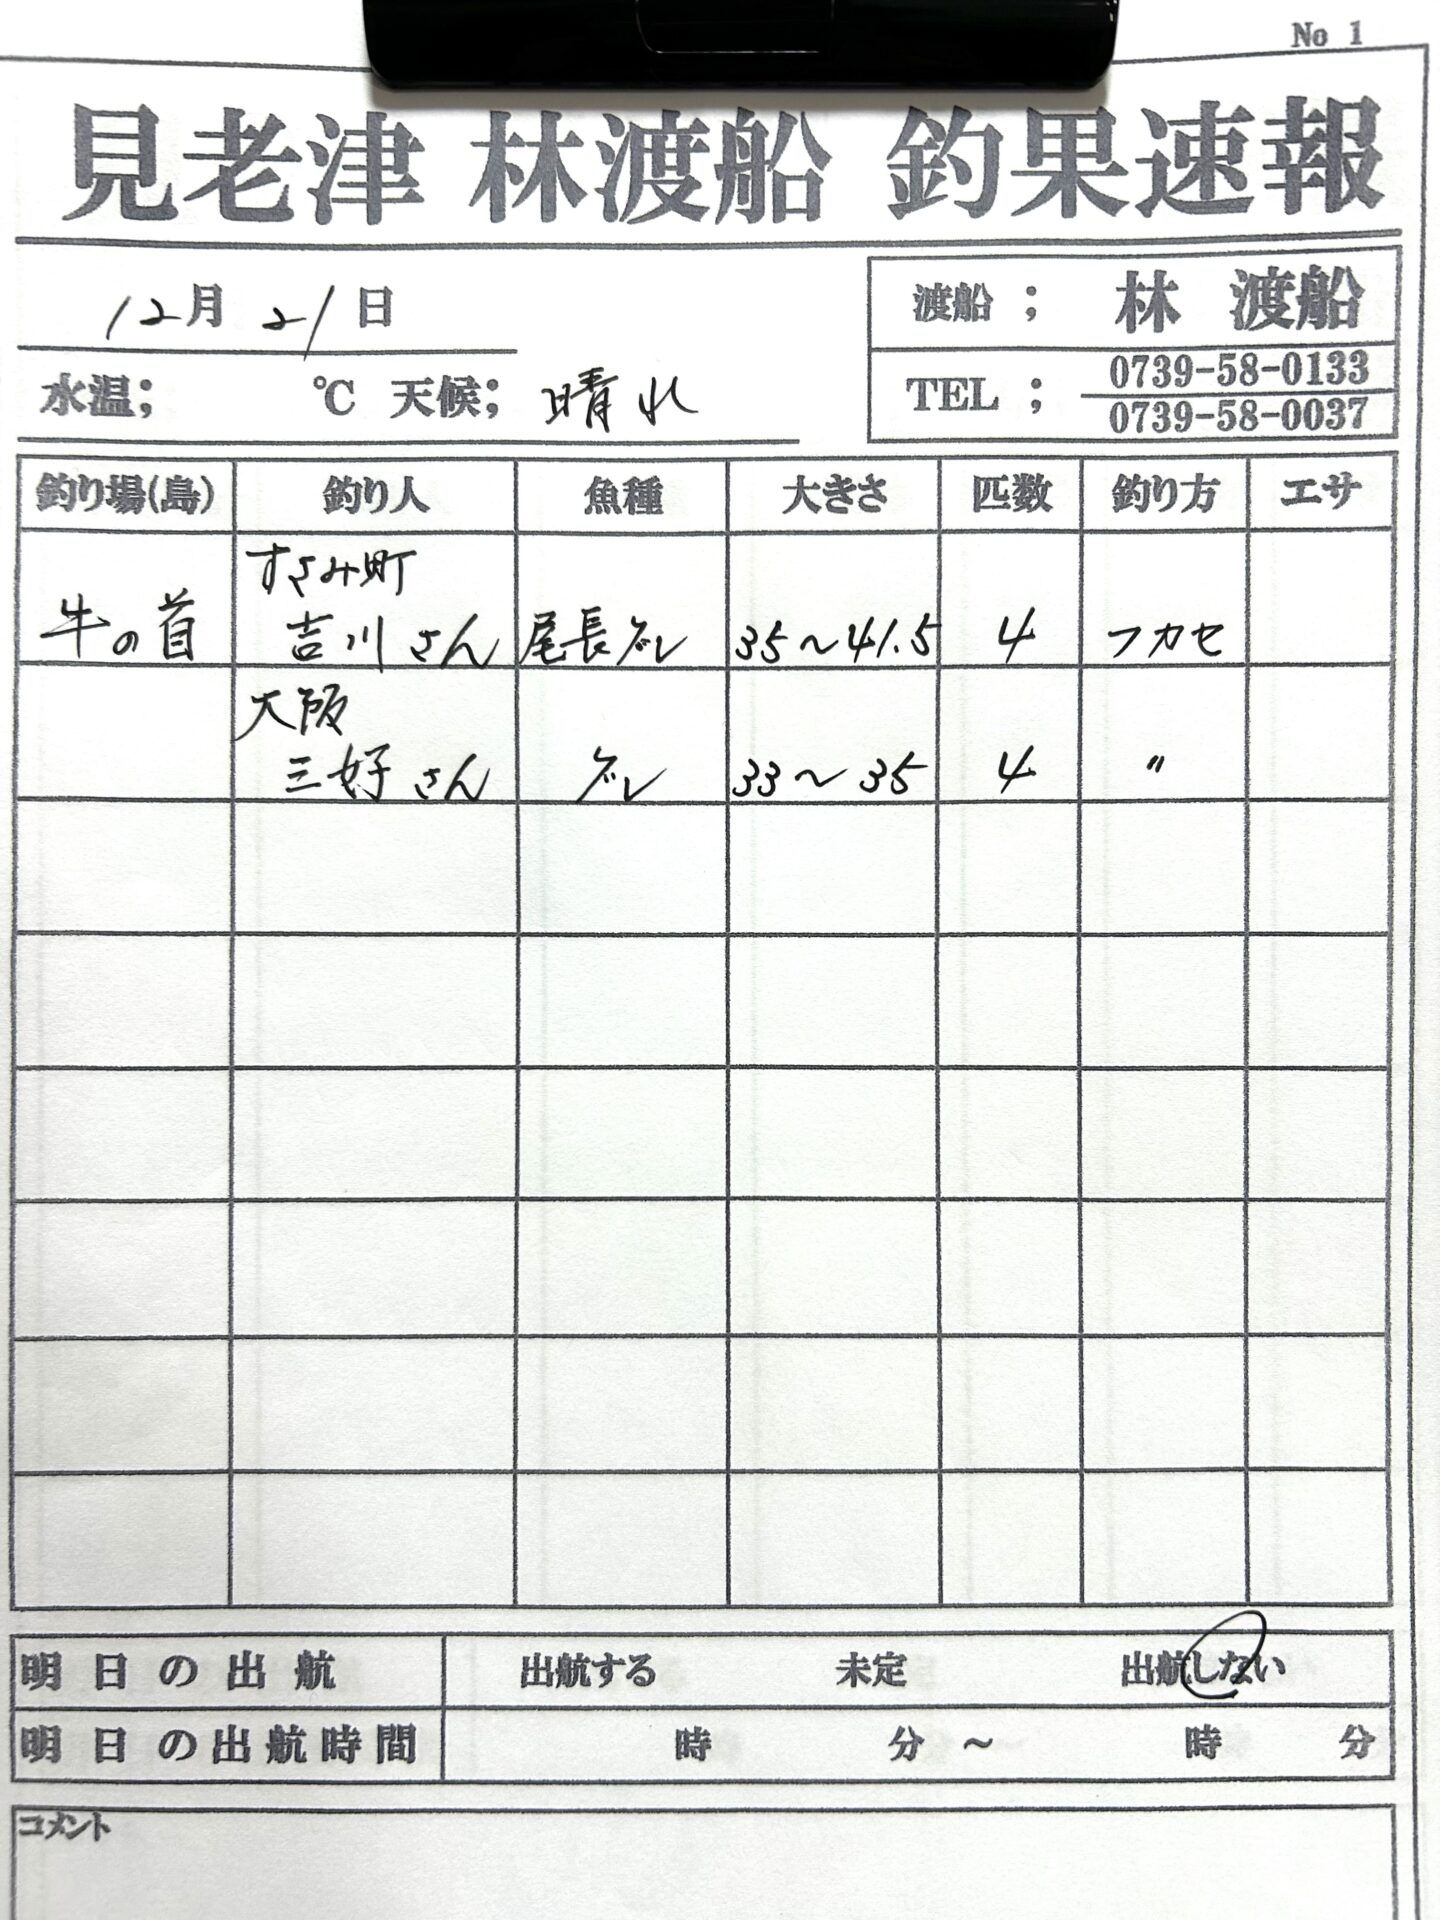 No 1
見老津 林渡船 釣果速報
12月 21日
渡船 ; 林 渡船
水温; ℃ 天候; 晴れ
TEL ; 0739-58-0133
0739-58-0037
釣り場(島) 釣り人 魚種 大きさ 匹数 釣り方 エサ
すさみ町
牛の首 吉川さん 尾長グレ 35〜41.5 4 フカセ
大阪
三好さん グレ 33〜35 4 〃
明日の出航 出航する 未定 出航しない
明日の出航時間 時 分 ~ 時 分
コメント